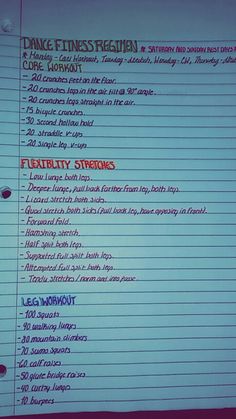 DANCE FITNESS REGIMEN * SATURDAY AND SUNDAY REST DAYS
* Monday - Core Workout, Tuesday - Stretch, Wednesday - Leg, Thursday -
CORE WORKOUT
- 20 crunches feet on the floor.
- 20 crunches legs in the air at @ 90° angle.
- 20 crunches legs straight in the air.
- 15 bicycle crunches
- 30 second hollow hold
- 20 straddle v-ups
- 20 single leg v-ups
FLEXIBLITY STRETCHES
- Low lunge both legs.
- Deeper lunge, pull back farther from leg, both legs.
- Lizard stretch both sides.
- Quad stretch both sides (pull back leg, have opposing in front).
- Forward fold.
- Hamstring stretch.
- Half split both legs.
- Supported full split both legs.
- Attempted full split both legs.
- Tendu stretches / norm and into passe.
LEG WORKOUT
- 100 squats
- 40 walking lunges
- 80 mountain climbers
- 70 sumo squats
- 60 calf raises
- 50 glute bridge raises
- 40 curtsy lunges
- 10 burpees